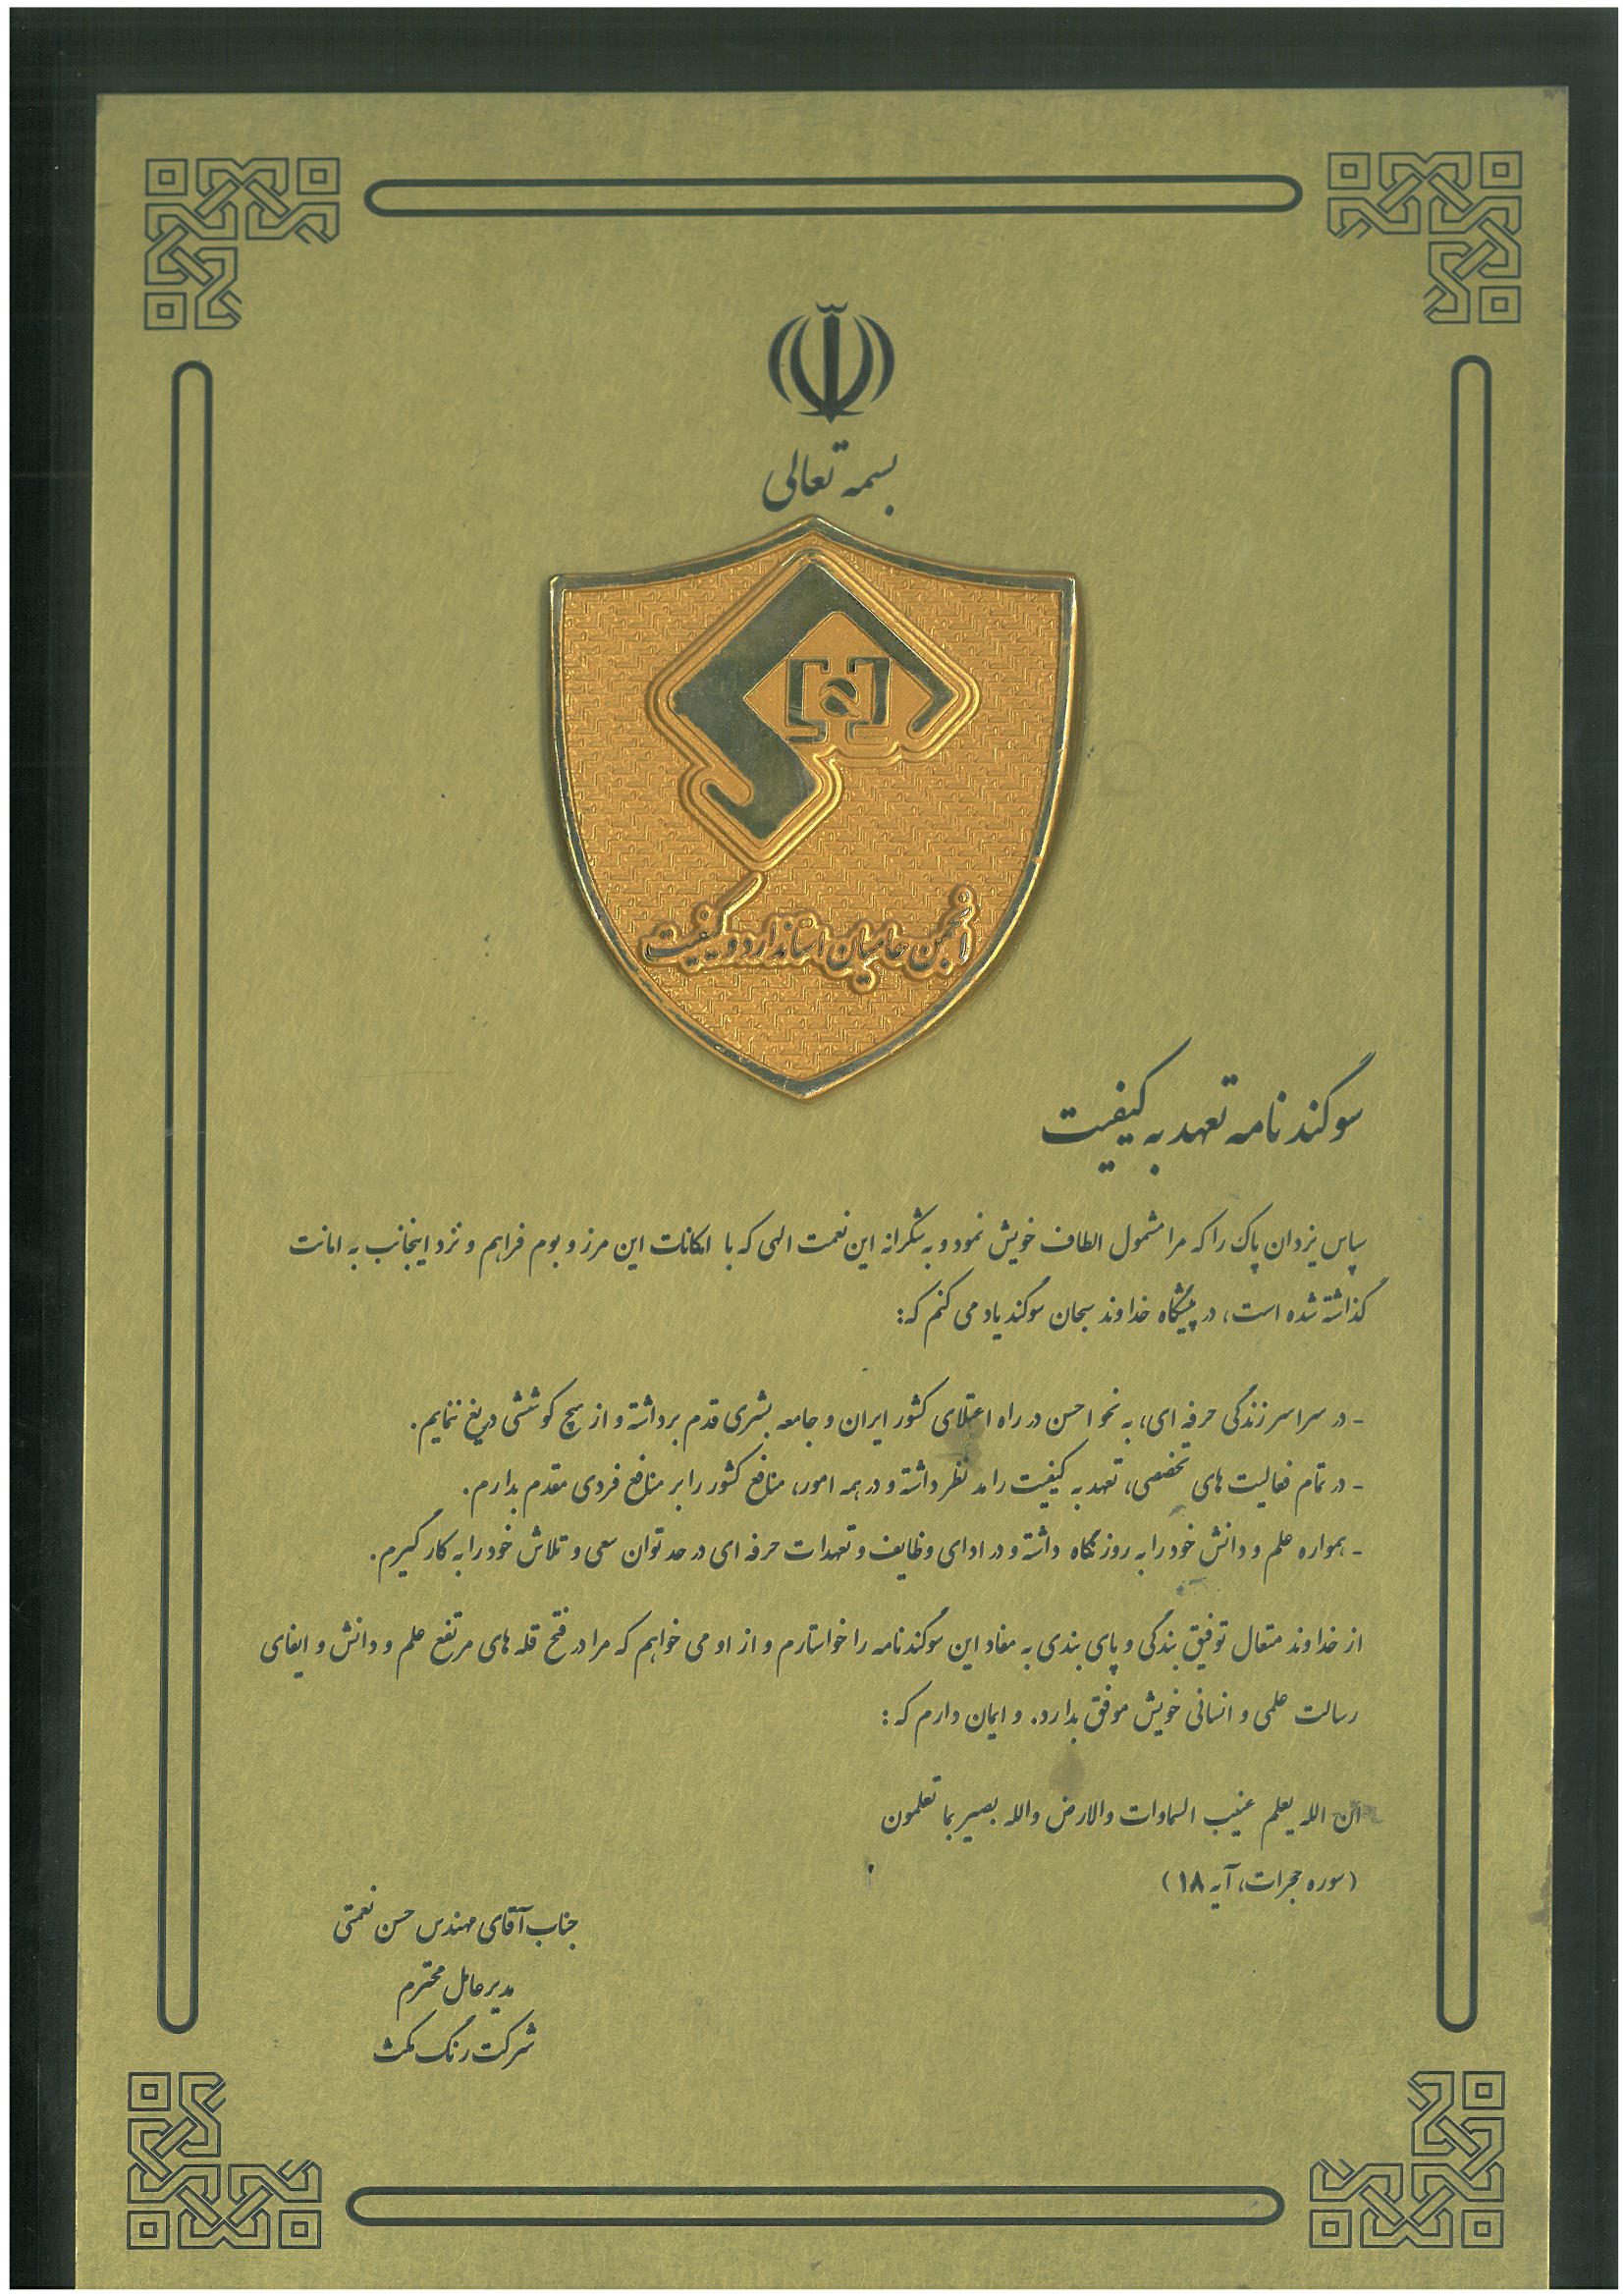 بسمه تعالی
انجمن حامیان استاندارد و کیفیت
سوگندنامه تعهد به کیفیت
سپاس یزدان پاک را که مرا مشمول الطاف خویش نمود و به شکرانه این نعمت الهی که با امکانات این مرز و بوم فراهم و نزد اینجانب به امانت
گذاشته شده است، در پیشگاه خداوند سبحان سوگند یاد می کنم که:
- در سراسر زندگی حرفه ای، به نحو احسن در راه اعتلای کشور ایران و جامعه بشری قدم برداشته و از هیچ کوششی دریغ ننمایم.
- در تمام فعالیت های تخصصی، تعهد به کیفیت را مد نظر داشته و در همه امور، منافع کشور را بر منافع فردی مقدم بدارم.
- همواره علم و دانش خود را به روز نگاه داشته و در ادای وظایف و تعهدات حرفه ای در حد توان سعی و تلاش خود را به کار گیرم.
از خداوند متعال توفیق بندگی و پای بندی به مفاد این سوگندنامه را خواستارم و از او می خواهم که مرا در فتح قله های مرتفع علم و دانش و ایفای
رسالت علمی و انسانی خویش موفق بدارد. و ایمان دارم که:
ان الله یعلم غیب السماوات والارض والله بصیر بما تعلمون
(سوره حجرات، آیه ۱۸)
جناب آقای مهندس حسن نعمتی
مدیرعامل محترم
شرکت رنگ مکث